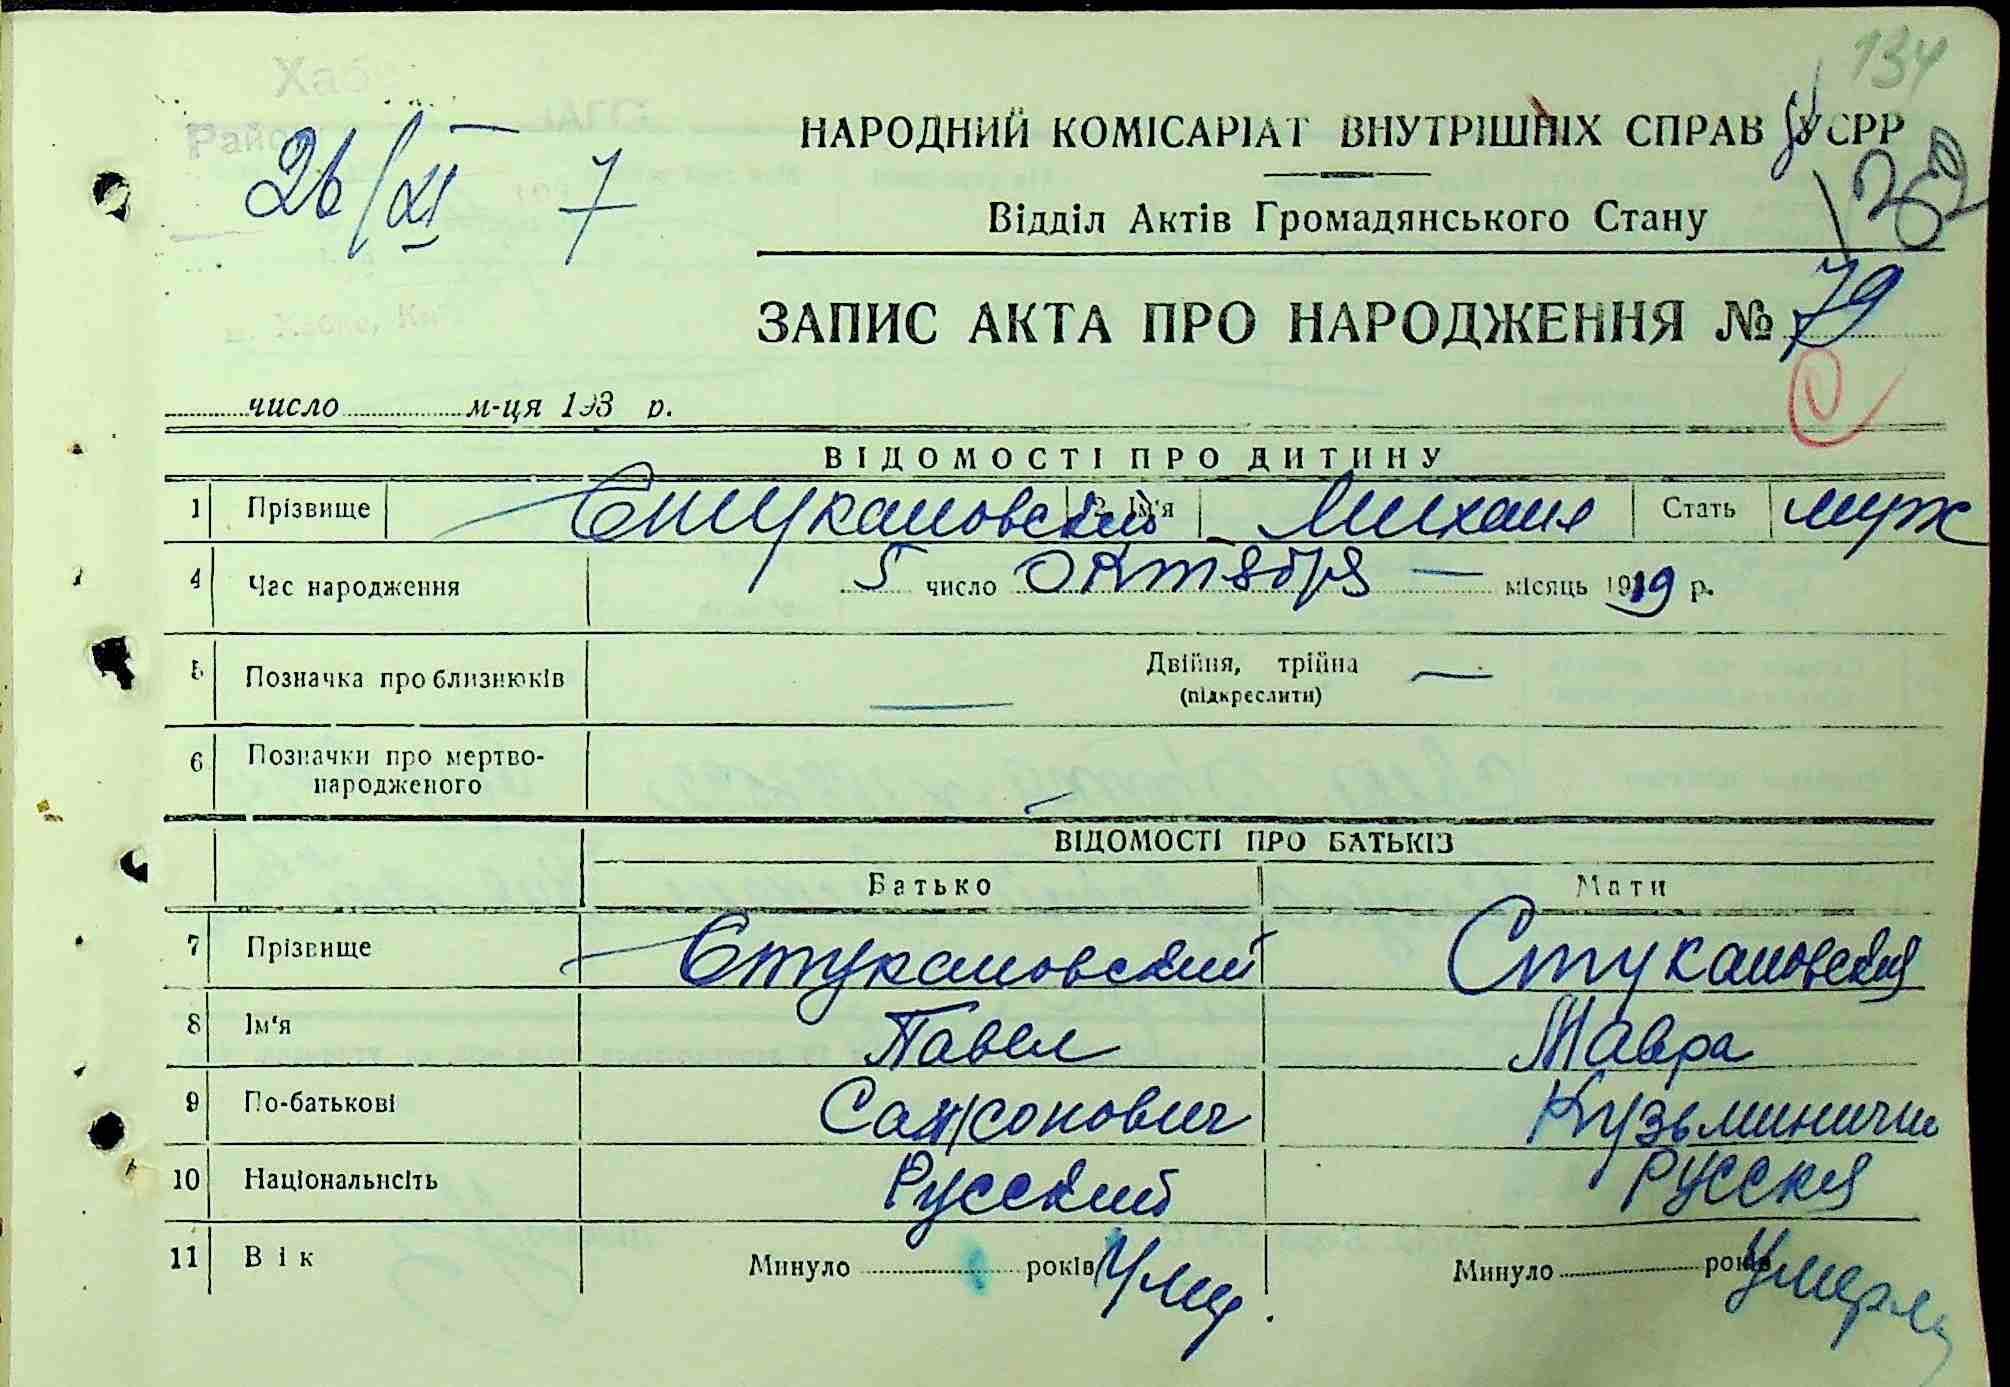 134
Хаб
Район
26/XI – 7
НАРОДНИЙ КОМІСАРІАТ ВНУТРІШНІХ СПРАВ УСРР
Відділ Актів Громадянського Стану
ЗАПИС АКТА ПРО НАРОДЖЕННЯ № 79
число м-ця 193 р.
ВІДОМОСТІ ПРО ДИТИНУ
1 Прізвище Стукановский 2 Ім'я Михаил Стать муж
4 Час народження 5 число Октября — місяць 1919 р.
5 Позначка про близнюків — Двійня, трійна —
(підкреслити)
6 Позначки про мертво-
народженого —
ВІДОМОСТІ ПРО БАТЬКІВ
Батько Мати
7 Прізвище Стукановский Стукановская
8 Ім'я Павел Мавра
9 По-батькові Самсонович Кузьминични
10 Національність Русский Русская
11 Вік Минуло років Ум. Минуло років Умерла